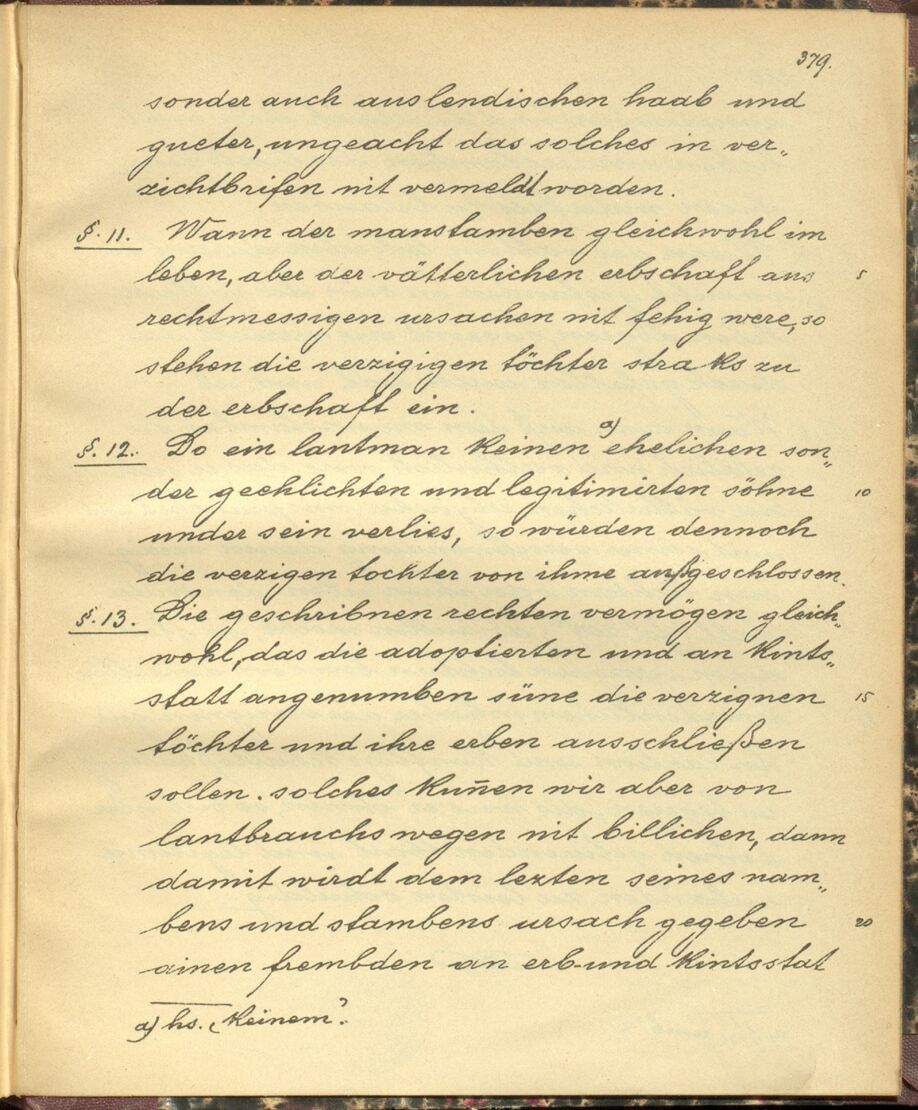 379.
sonder auch auslendischen haab und
gueter, ungeacht das solches in ver„
zichtbrifen nit vermeldt worden.
§. 11. Wann der manstamben gleichwohl im
leben, aber der vätterlichen erbschaft aus 5
rechtmessigen ursachen nit fehig were, so
stehen die verzigigen töchter straks zu
der erbschaft ein.
§. 12. Do ein lantman keinen a) ehelichen son„
der geehlichten und legitimirten söhne 10
under sein verlies, so würden dennoch
die verzigen tochter von ihme außgeschlossen.
§. 13. Die geschribnen rechten vermögen gleich„
wohl, das die adoptierten und an kints„
statt angenumben süne die verzignen 15
töchter und ihre erben ausschließen
sollen. solches kun̄en wir aber von
lantbrauchs wegen nit billichen, dann
damit wirdt dem lezten seines nam„
bens und stambens ursach gegeben 20
ainen frembden an erb- und kintsstat
a) hs. „keinem".